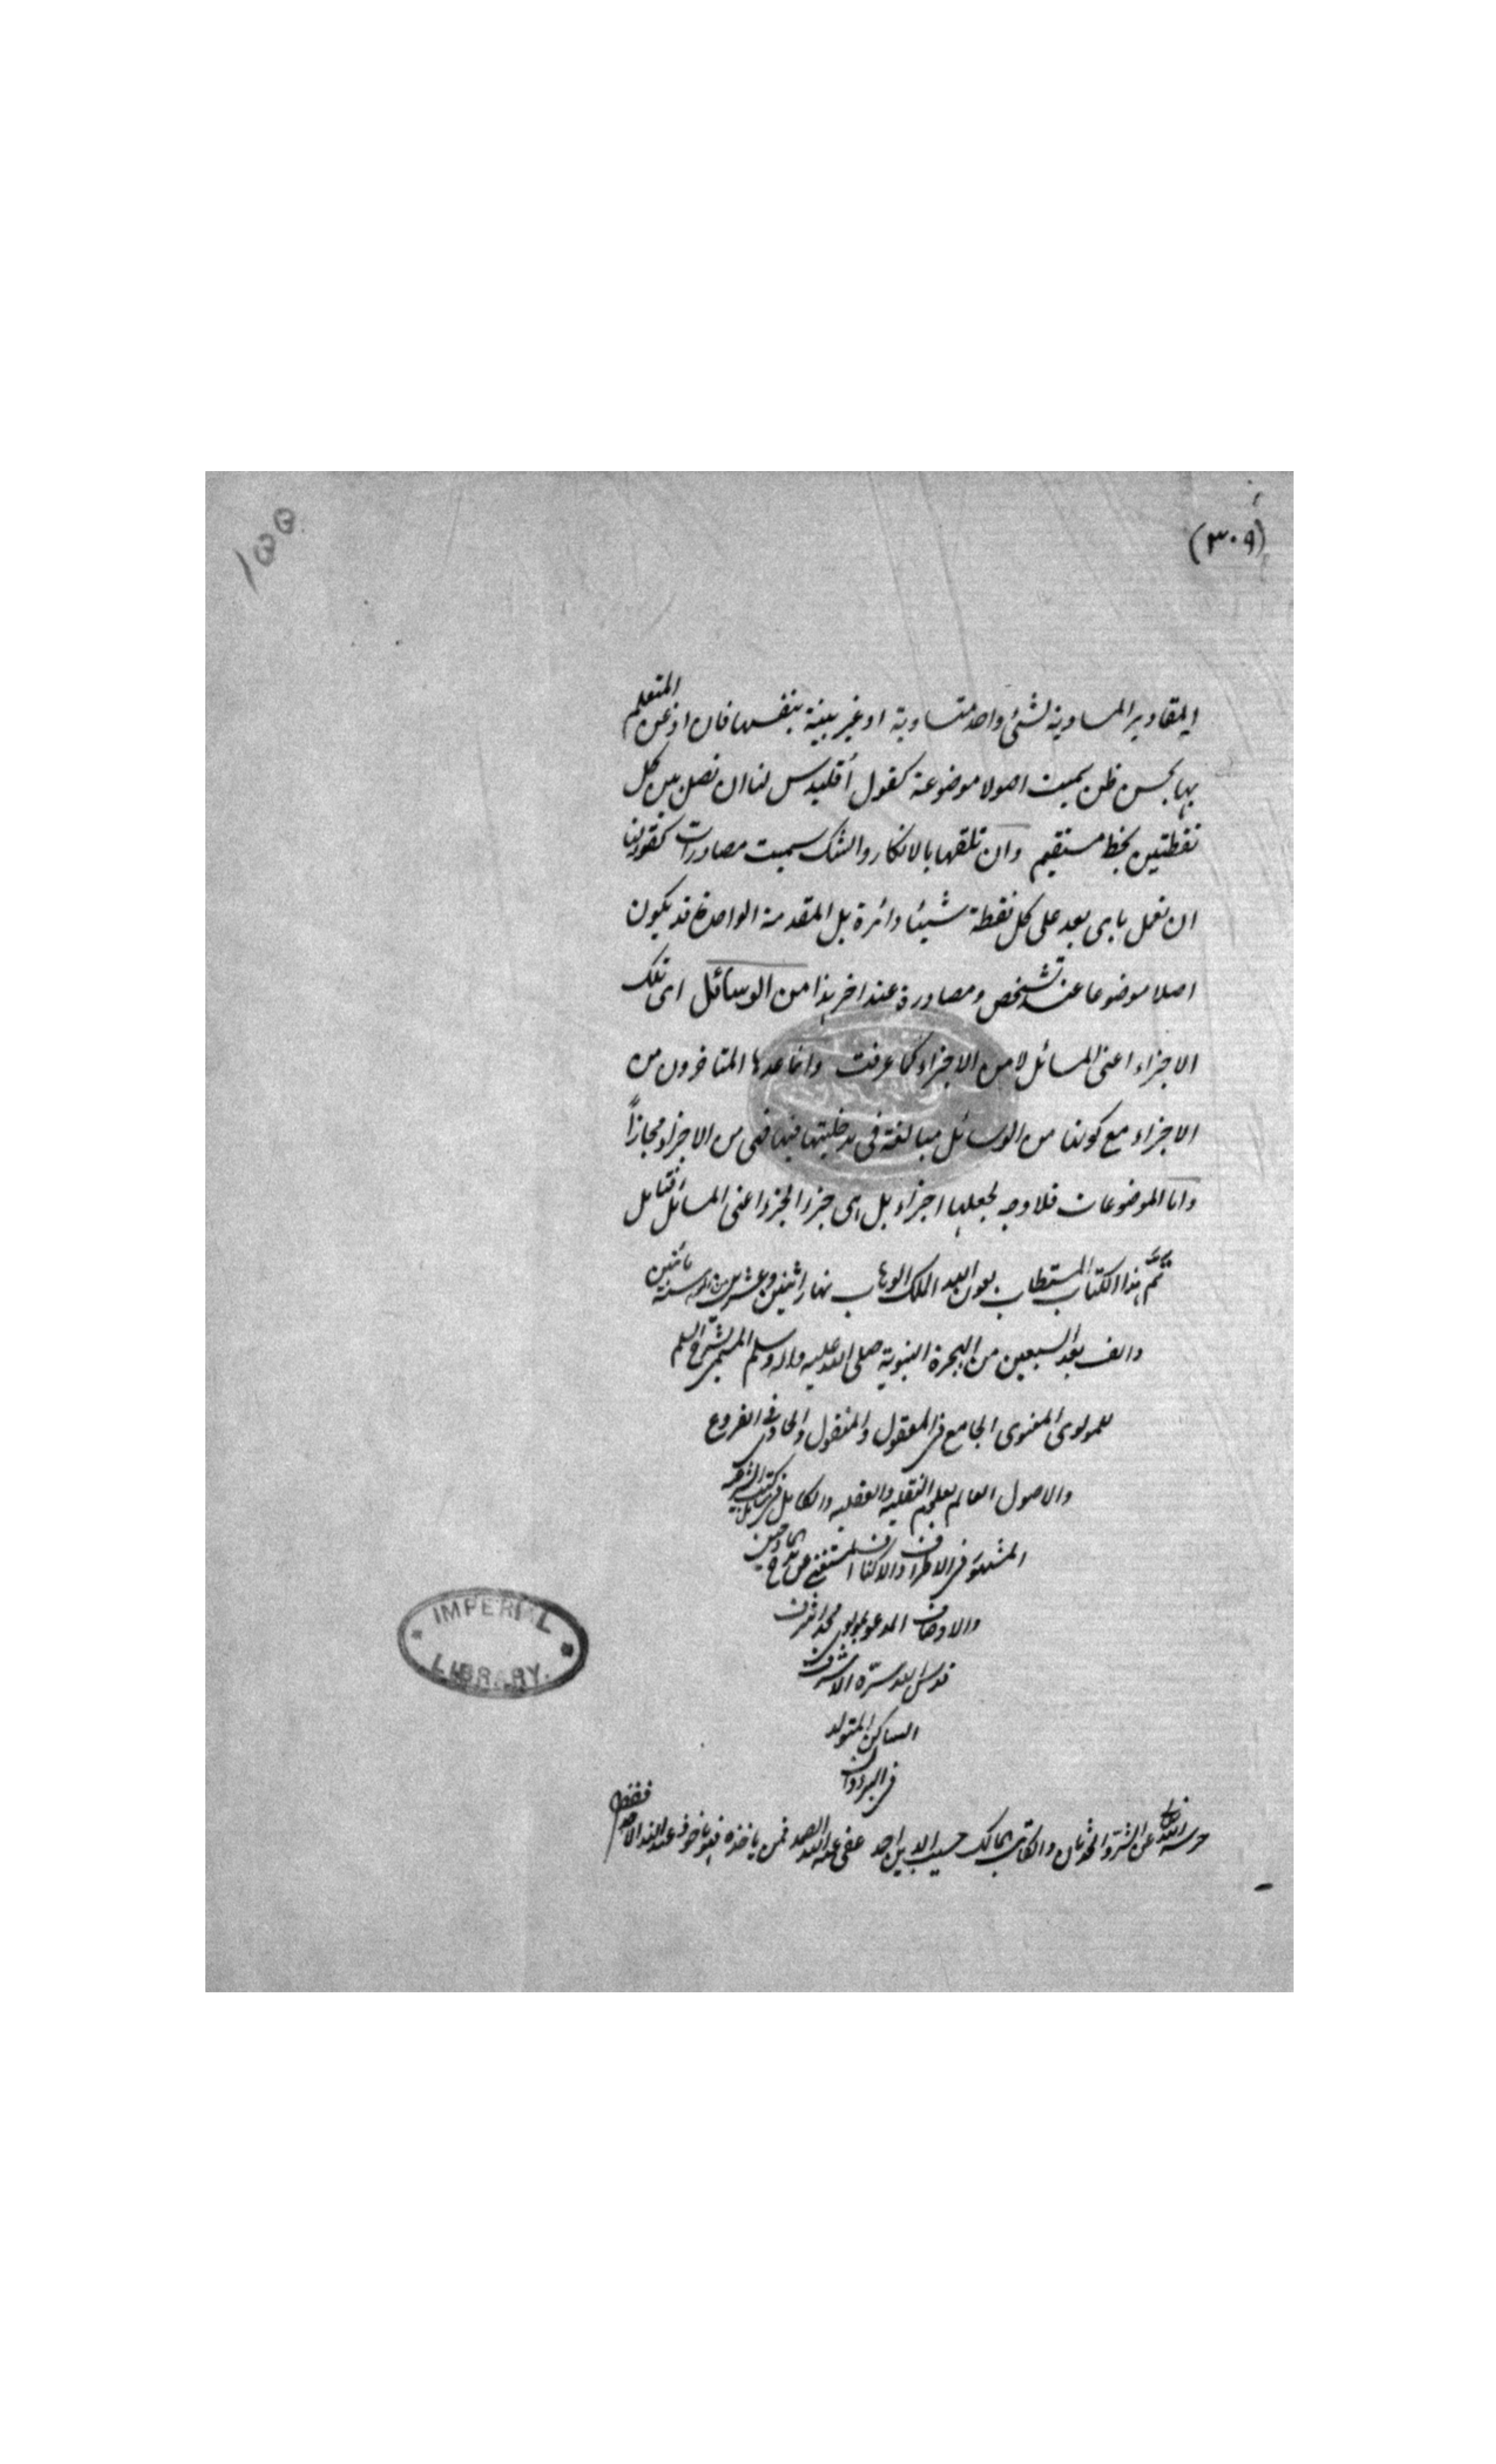 (٣٠٩)
١٥٥
المقادير المساوية لشئ واحد متساوية او غير بينة بنفسها فان اذعن المتعلم
بها بحسن ظن سميت اصولا موضوعة كقول أقليدس لنا ان نصل بين كل
نقطتين بخط مستقيم وان تلقها بالانكار والشك سميت مصادرات كقوله لنا
ان نعمل باى بعد على كل نقطة شيئا دائرة بل المقدمة الواحدة قد يكون
اصلا موضوعا عند شخص ومصادرة عند اخر هذا من الوسائل اى تلك
الاجزاء اعنى المسائل لا من الاجزاء كما عرفت وانما عدها المتاخرون من
الاجزاء مع كونها من الوسائل مبالغة فى مدخليتها فيها فهى من الاجزاء مجازاً
واما الموضوعات فلا وجه لجعلها اجزاء بل هى جزء الجزء اعنى المسائل فتامل
تمّ هذا الكتاب المستطاب بعون الله الملك الوهاب نهار اثنين وعشرين سنة مائتين
والف بعد السبعين من الهجرة النبوية صلى الله عليه واله وسلم المسمى بشرح السلم
للمولوى المعنوى الجامع فى المعقول والمنقول والحاوى فى الفروع
والاصول العالم بعلوم النقليه والعقليه والكامل فى
المشتهر فى الاطراف والاكناف المستغنى عن مدح
والاوصاف المدعو بمولوى محمد اشرف
قدس الله سرّه الاشرف
الساكن المتولد
فى البردوان
حرسه الله عن الشر والحدثان والكاتب المالك حسيب الدين احمد عفى عنه الله الصمد فمن ياخذه فهو ماخوذ عند الله الاحد فقط
IMPERIAL
LIBRARY.